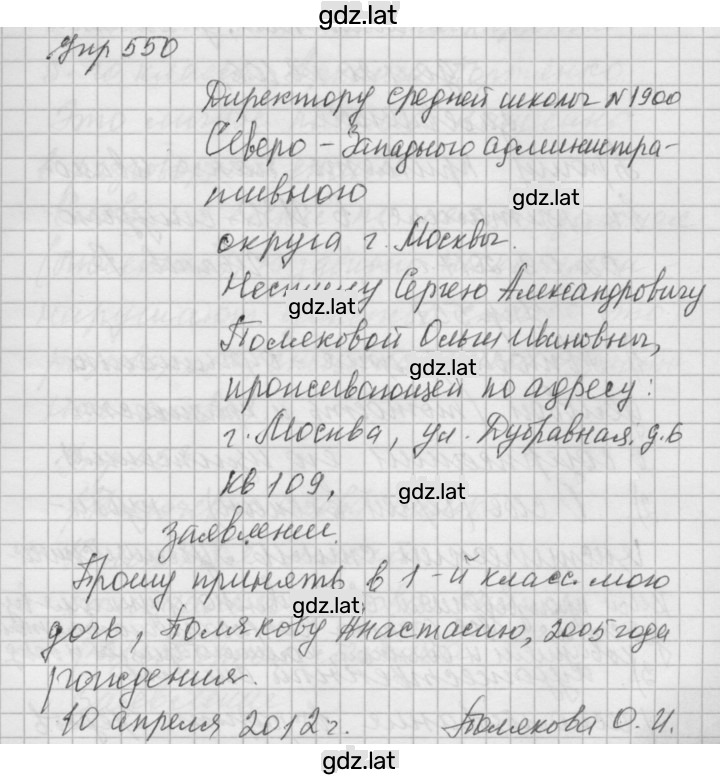 gdz.lat
Упр 550
Директору средней школы №1900
Северо-Западного администра-
тивного
gdz.lat
округа г. Москвы.
Сергею Александровичу
gdz.lat
Поляковой Ольги Ивановны,
gdz.lat
проживающей по адресу:
г. Москва, ул. Дубравная, д.6
кв 109,
gdz.lat
заявление.
Прошу принять в 1-й класс мою
gdz.lat
дочь, Полякову Анастасию, 2005 года
рождения.
10 апреля 2012 г. Полякова О. И.
gdz.lat